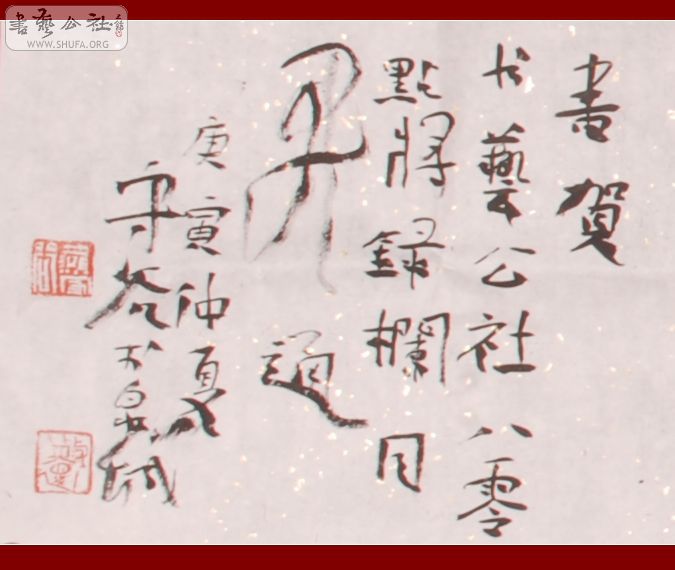 書藝公社
WWW.SHUFA.ORG
書賀
书藝公社八零
點將錄欄目
開通
庚寅仲夏
守谷于泉城